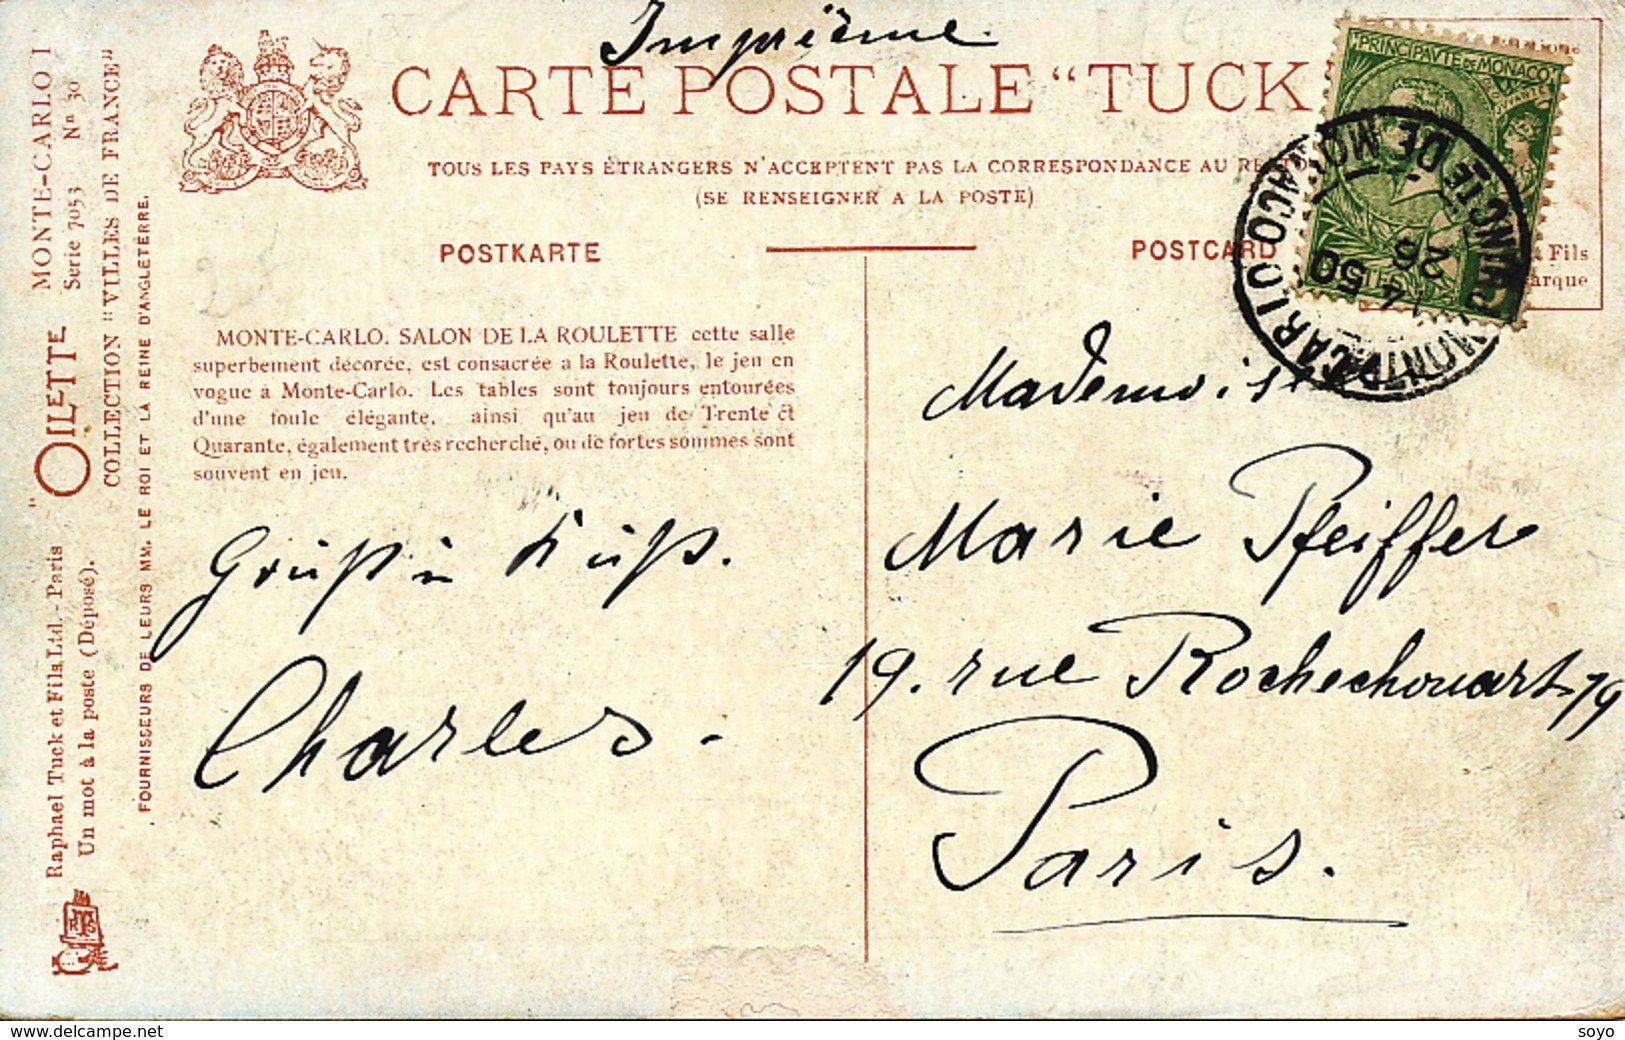 Imprième.
CARTE POSTALE “TUCK
TOUS LES PAYS ÉTRANGERS N'ACCEPTENT PAS LA CORRESPONDANCE AU RECTO
(SE RENSEIGNER A LA POSTE)
POSTKARTE
POSTCARD
PRINCIPAUTÉ DE MONACO
MONTE CARLO
PRINCTE DE MONACO
14 50
26
Fils
arque
MONTE-CARLO. SALON DE LA ROULETTE cette salle
superbement décorée, est consacrée a la Roulette, le jeu en
vogue à Monte-Carlo. Les tables sont toujours entourées
d'une foule élégante, ainsi qu'au jeu de Trente et
Quarante, également très recherché, ou de fortes sommes sont
souvent en jeu.
Gruß u Kuß.
Charles.
Mademoiselle
Marie Pfeiffer
19. rue Rochechouart 79
Paris.
MONTE-CARLO I
Serie 7053 Nn 30
“OILETTE
COLLECTION “VILLES DE FRANCE”
Raphael Tuck et Fils Ltd. - Paris
Un mot à la poste (Déposé).
FOURNISSEURS DE LEURS MM. LE ROI ET LA REINE D'ANGLETERRE.
www.delcampe.net
soyo